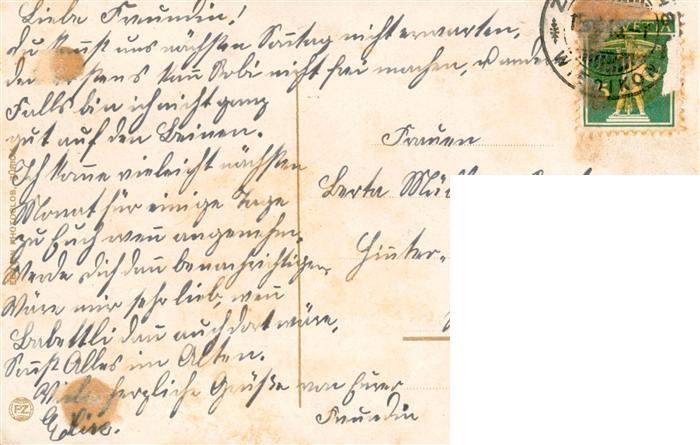 Liebe Freundin!
Du kannst uns nächsten Sonntag nicht erwarten,
den erstens kann Robi nicht frei machen, u andern
Falls bin ich nicht ganz
gut auf den Beinen.
Ich kome vieleicht nächsten
Monat für einige Tage
zu Euch wenn angenehm.
Werde Dich dan benachrichtigen,
Wäre mir sehr lieb, wenn
Babettli dan auch dort wäre,
Sonst Alles im Alten.
Viele herzliche Grüße von Eurer
Freundin
Frauen
Berta
Hinter-
PZ